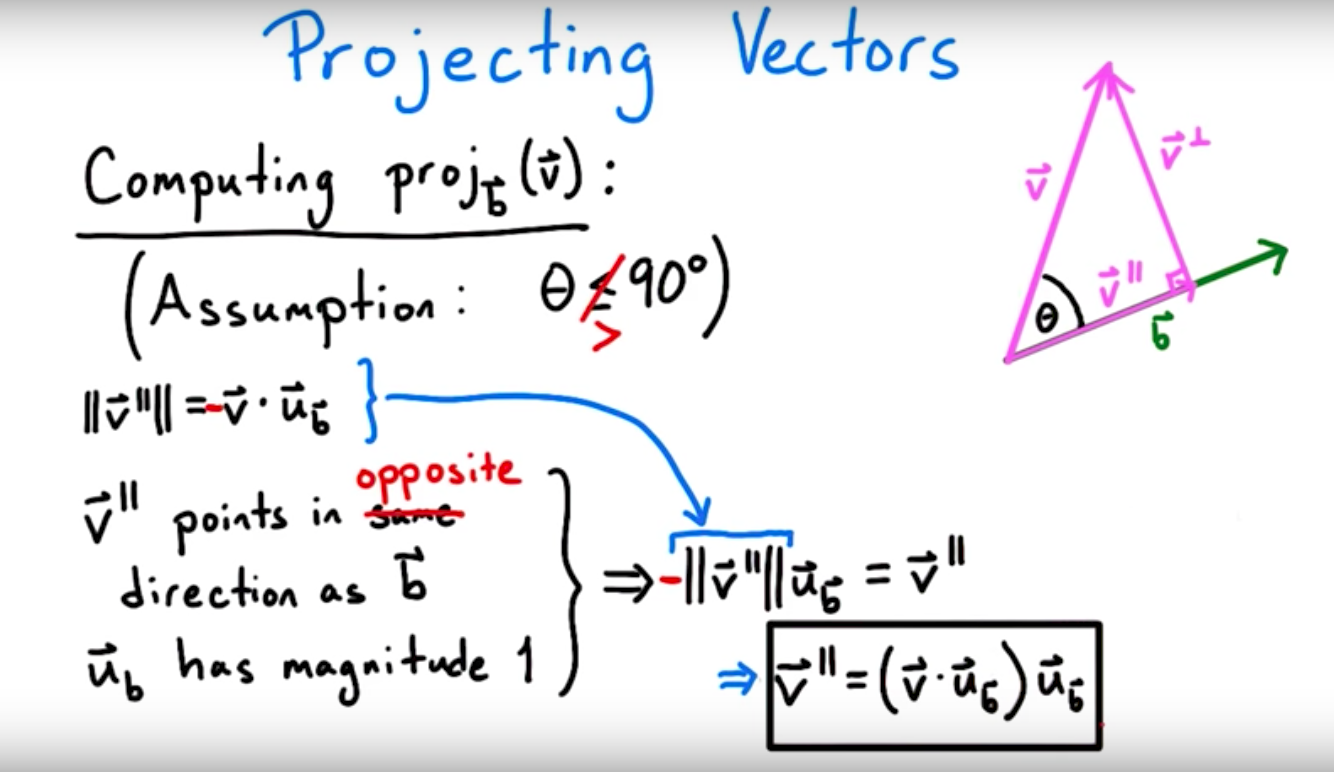 Projecting Vectors
Computing proj_b⃗ (v⃗) :
(Assumption : θ ≤ 90°)
>
‖v⃗‖‖ = -v⃗ · u⃗_b⃗
opposite
v⃗‖ points in same
direction as b⃗
u⃗_b has magnitude 1
⇒ -‖v⃗‖‖ u⃗_b⃗ = v⃗‖
⇒ v⃗‖ = (v⃗ · u⃗_b⃗) u⃗_b⃗
v⃗
v⃗⊥
v⃗‖
θ
b⃗